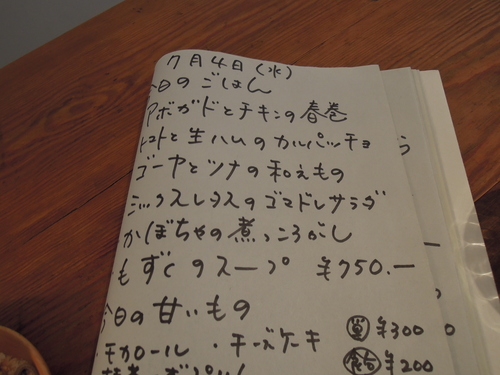 7月4日(水)
今日のごはん
アボガドとチキンの春巻
トマトと生ハムのカルパッチョ
ゴーヤとツナの和えもの
ミックスレタスのゴマドレサラダ
かぼちゃの煮っころがし
もずくのスープ ¥750.-
今日の甘いもの
モカロール ・チーズケーキ
単 ¥300
食后 ¥200